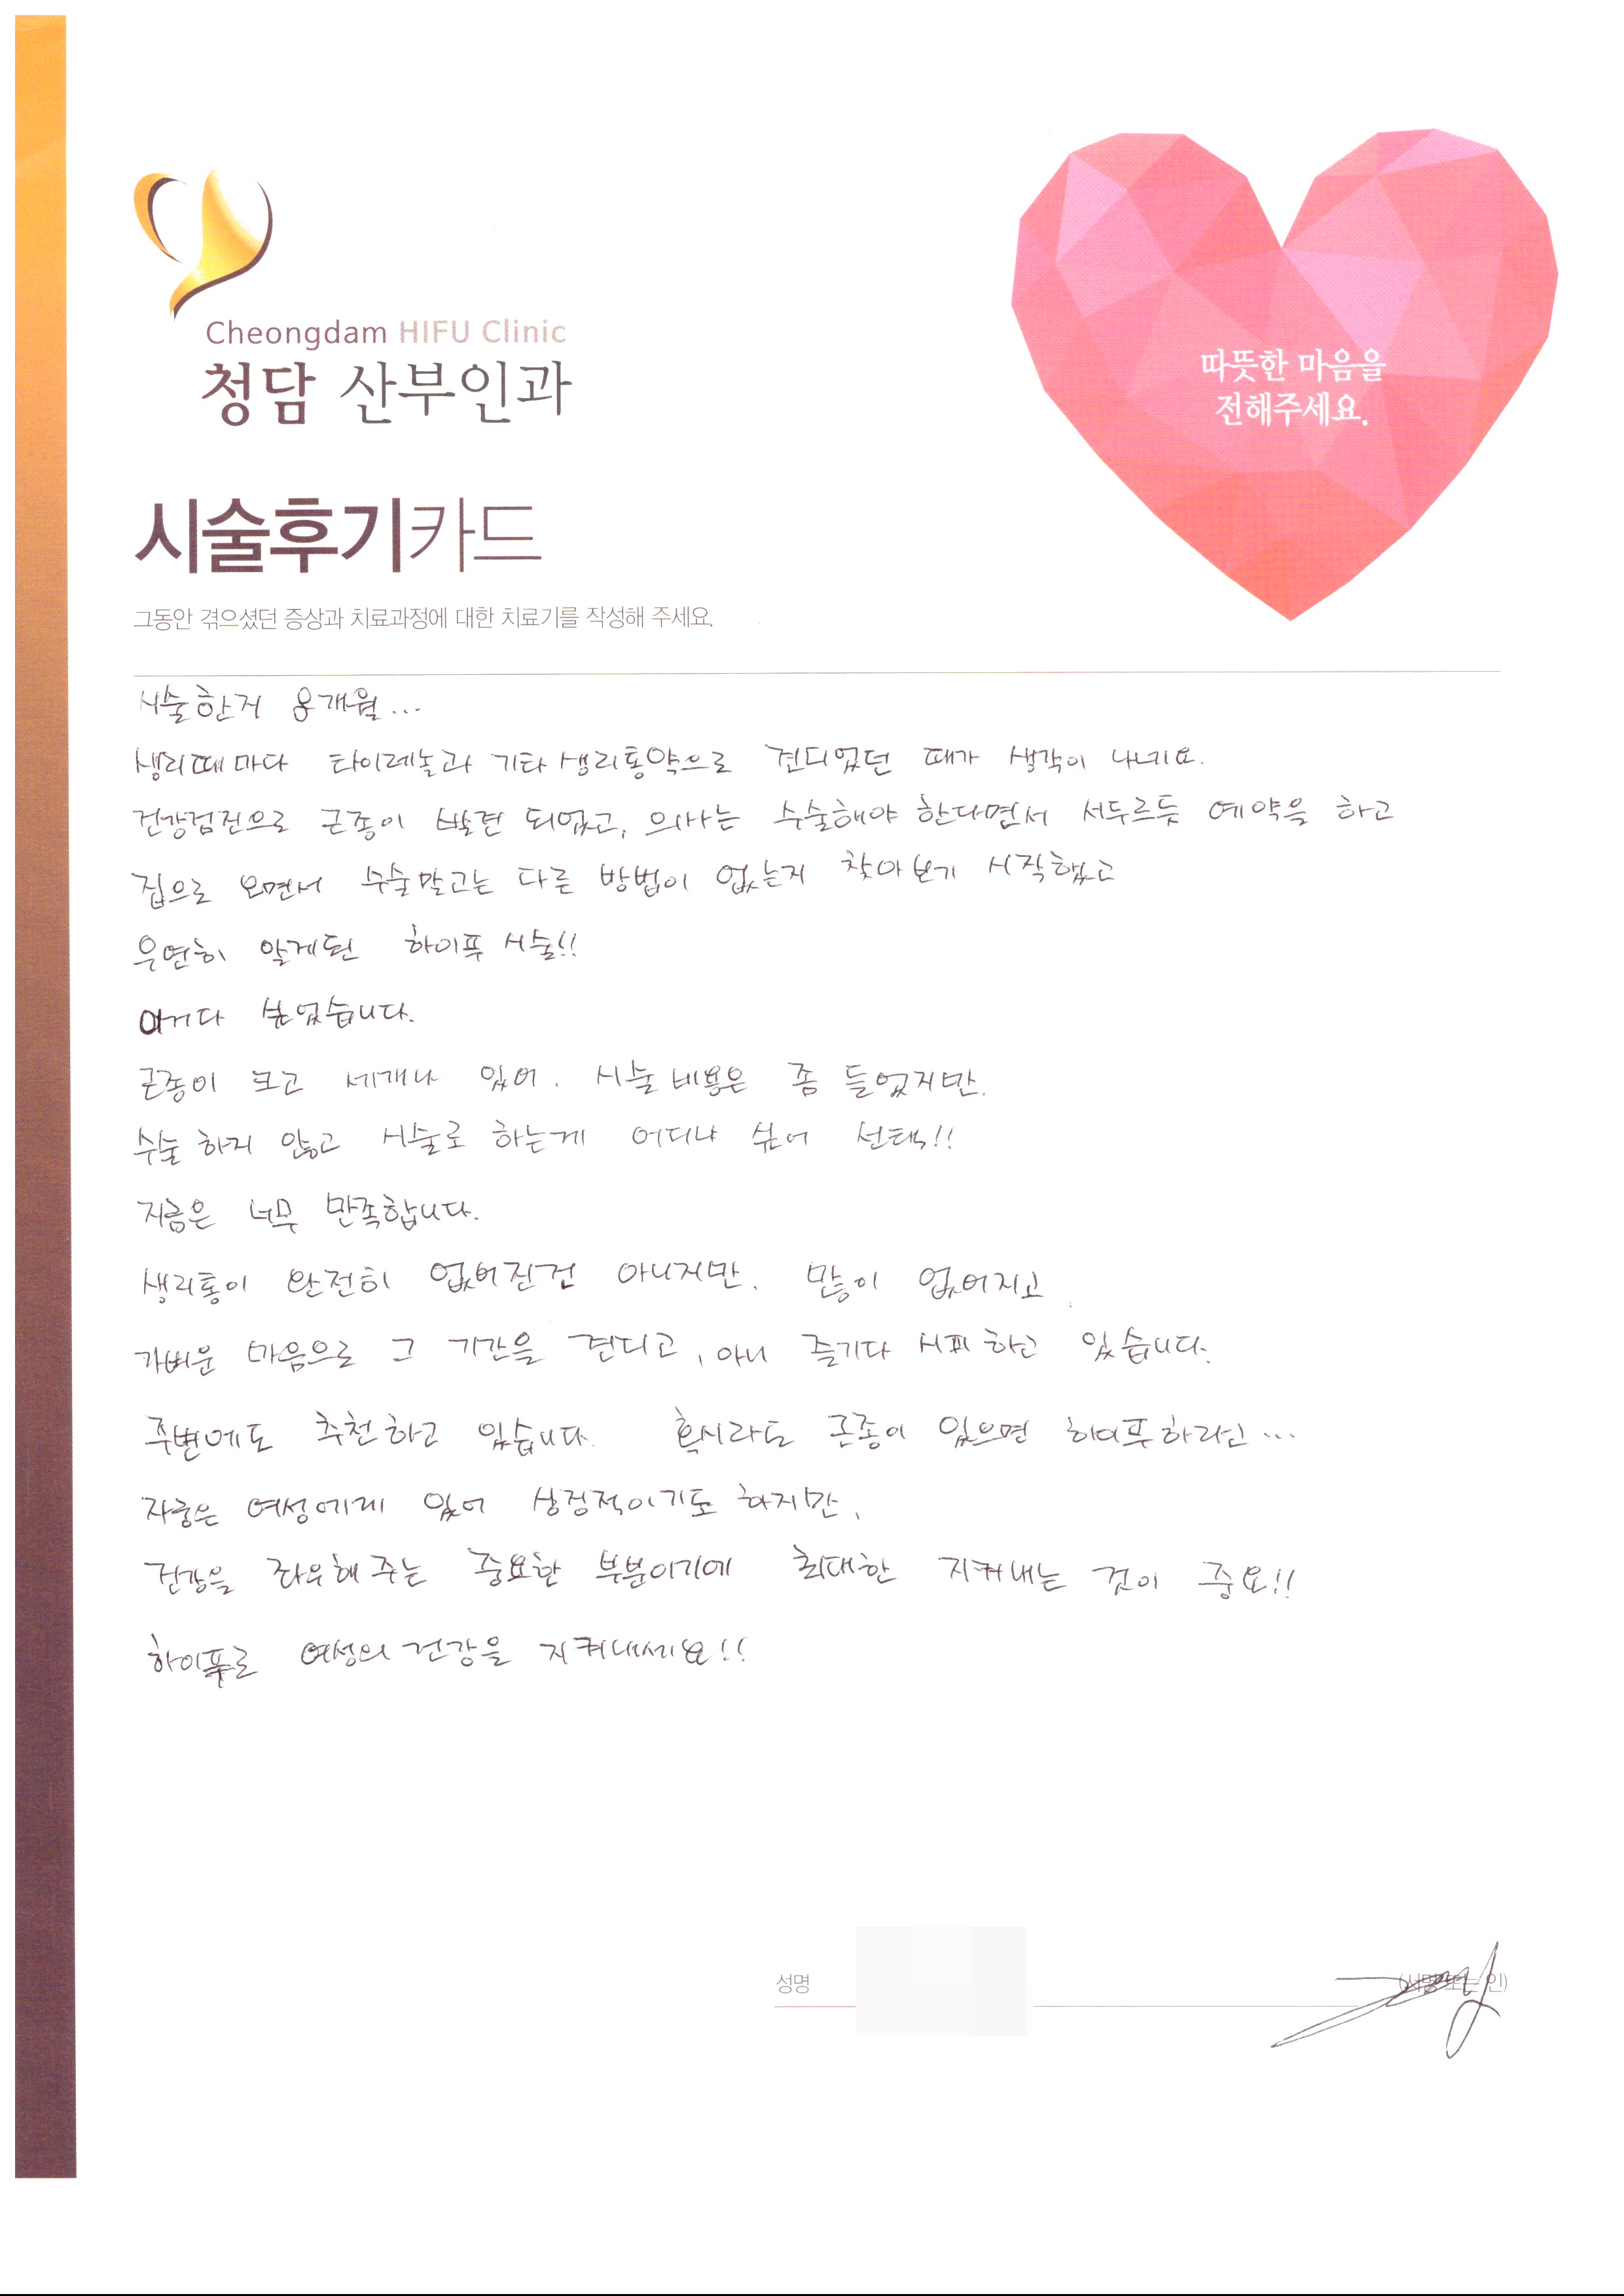 Cheongdam HIFU Clinic
청담 산부인과
따뜻한 마음을
전해주세요.
시술후기카드
그동안 겪으셨던 증상과 치료과정에 대한 치료기를 작성해 주세요.
시술한지 용개월...
생리때마다 타이레놀과 기타 생리통약으로 견디었던 때가 생각이 나네요.
건강검진으로 근종이 발견 되었고, 의사는 수술해야 한다면서 서두르듯 예약을 하고
집으로 오면서 수술말고는 다른 방법이 없는지 찾아보기 시작했고
우연히 알게된 하이푸 시술!!
이거다 싶었습니다.
근종이 크고 세개나 있어. 시술비용은 좀 들었지만.
수술 하지 않고 시술로 하는게 어디냐 싶어 선택!!
지금은 너무 만족합니다.
생리통이 완전히 없어진건 아니지만. 많이 없어지고
가벼운 마음으로 그 기간을 견디고, 아니 즐기다 시피 하고 있습니다.
주변에도 추천하고 있습니다. 혹시라도 근종이 있으면 하이푸하라고...
자궁은 여성에게 있어 상징적이기도 하지만,
건강을 좌우해 주는 중요한 부분이기에 최대한 지켜내는 것이 중요!!
하이푸로 여성의 건강을 지켜내세요!!
성명 (서명 또는 인)